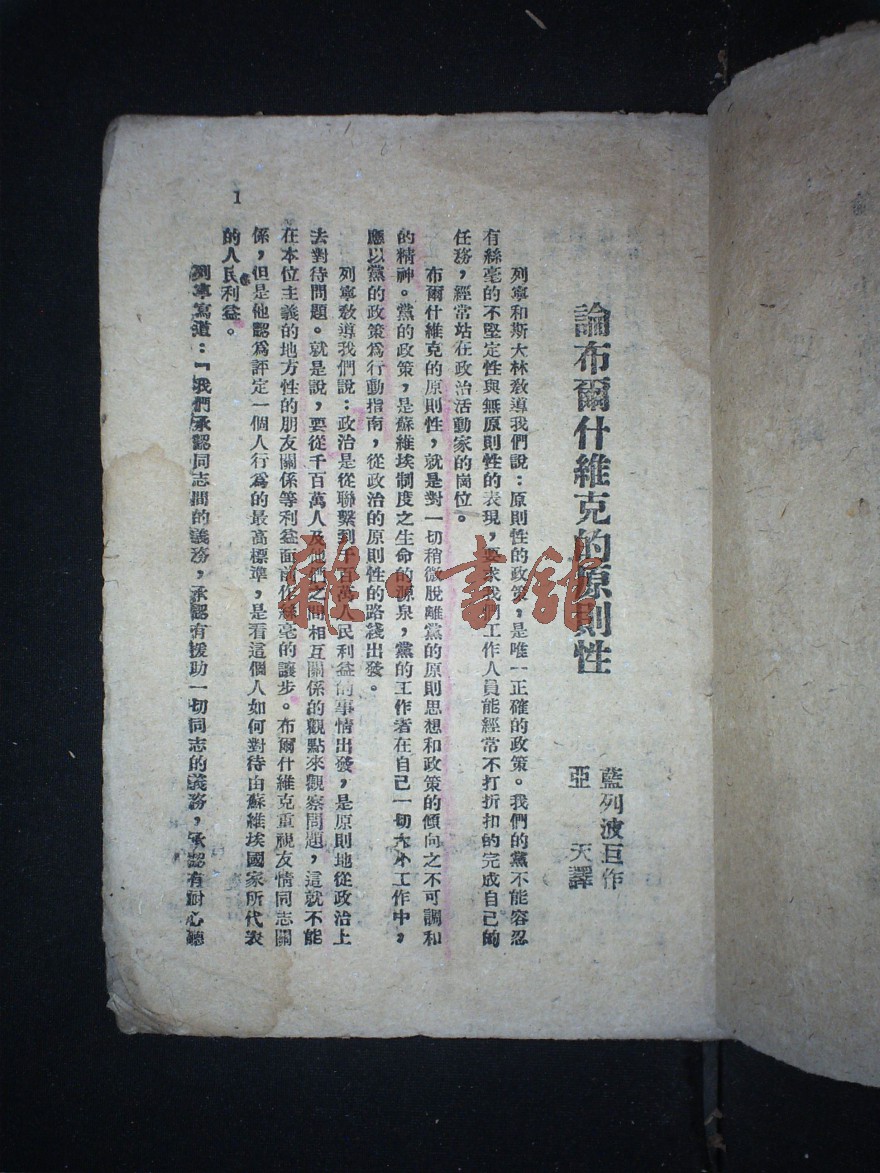 論布爾什維克的原則性
藍列波巨作
亞 天譯
列寧和斯大林敎導我們說：原則性的政策，是唯一正確的政策。我們的黨不能容忍
有絲毫的不堅定性與無原則性的表現，要求我們工作人員能經常不打折扣的完成自己的
任務，經常站在政治活動家的崗位。
布爾什維克的原則性，就是對一切稍微脫離黨的原則思想和政策的傾向之不可調和
的精神。黨的政策，是蘇維埃制度之生命的源泉，黨的工作者在自己一切大小工作中，
應以黨的政策爲行動指南，從政治的原則性的路綫出發。
列寧敎導我們說：政治是從聯繫到千百萬人民利益的事情出發，是原則地從政治上
去對待問題。就是說，要從千百萬人及他們之間相互關係的觀點來觀察問題，這就不能
在本位主義的地方性的朋友關係等利益面前作絲毫的讓步。布爾什維克重視友情同志關
係，但是他認爲評定一個人行爲的最高標準，是看這個人如何對待由蘇維埃國家所代表
的人民利益。
列寧寫道：「我們承認同志間的義務，承認有援助一切同志的義務，承認有耐心聽
1
雜·書館